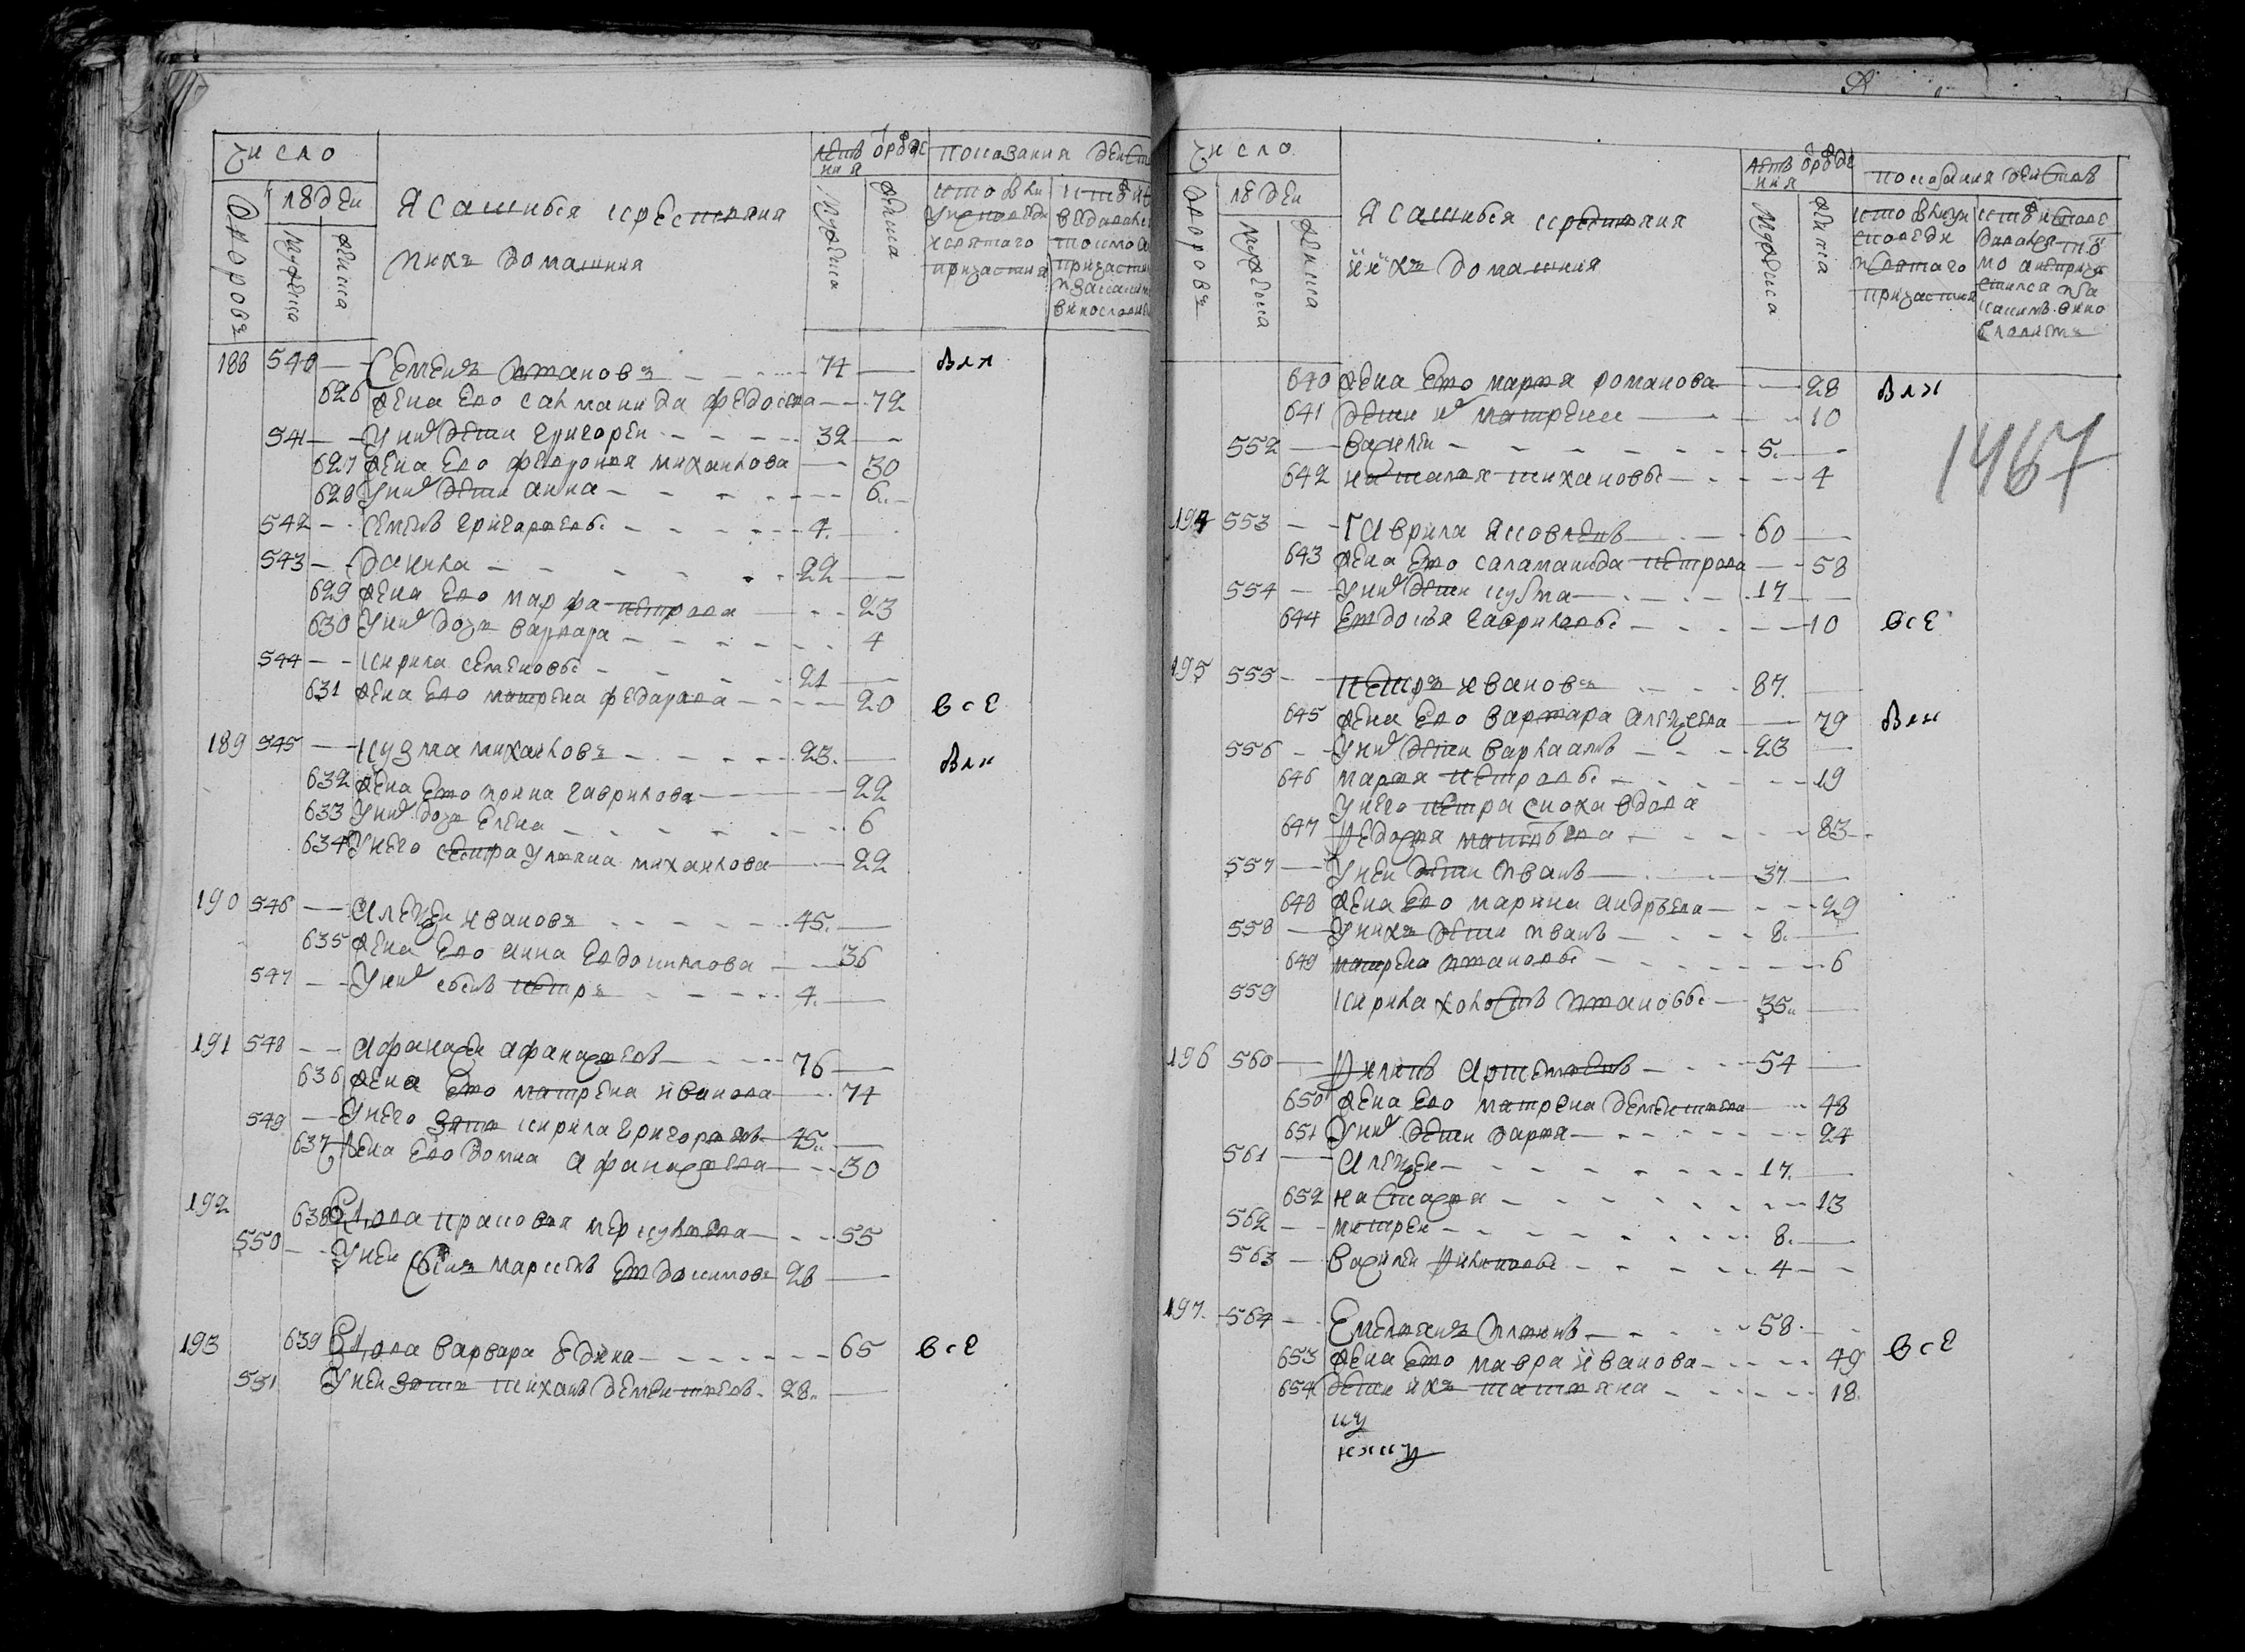 число
людеи
дворовъ
мужеска
женска
Ясашныя крестьяня
и ихъ домашния
лѣтъ от рожде
ния
мужеска
женска
показания действ
кто был и
у исповеди
и святаго
причастия
188 540 — Семенъ Степановъ 74 — были
626 жена ево саламанида федосева — 72
541 — У них дети григореи 32 —
627 жена ево феврония михаилова — 30
628 У них дети анна 6
542 — семенъ григоревы 4
543 — данила 22 —
629 жена ево марфа петрова 23
630 У них дочь варвара 4
544 — кирила семеновы 21
631 жена ево матрена федарава 20 все
189 545 — кузма михаиловъ 23 — были
632 жена ево ирина гаврилова 22
633 У них дочь елена 6
634 У него сестра ульяна михаилова 22
190 546 — Алеѯеи ивановъ 45 —
635 жена ево анна евдокимова 36
547 — У них сынъ петръ 4 —
191 548 — Афанасеи афанасевъ 76 —
636 жена ево матрена иванова 74
549 — У него зять кирила григорьевъ 45 —
637 жена ево домна афанасьева 30
192 638 Вдова прасковья меркульева 55
550 — У неи сынъ маркелъ евдокимовъ 26 —
193 639 Вдова варвара юдина 65 все
551 У неи зять михаилъ дементьевъ 28 —
число
людеи
дворовъ
мужеска
женска
Ясашныя крестьяня
и ихъ домашния
лѣтъ от рожде
ния
мужеска
женска
показания действъ
кто был у и
споведи
и святаго
причастия
640 жена ево марья романова 28 были
641 дети их матрена 10
552 — василеи 5 —
642 наталья михаиловы 4
194 553 — Гаврила яковлевъ 60 —
643 жена ево саламанида петрова 58
554 — У них дети кузма 17 —
644 евдокия гавриловы 10 все
195 555 — петръ ивановъ 87 —
645 жена ево варвара алеѯеева 79 были
556 — У них дети варлаамъ 23 —
646 марья петровы 19
У него петра сноха вдова
647 федосья матвѣева 83
557 — У неи дети иванъ 37 —
648 жена ево марина андрѣева 29
558 — У нихъ дети иванъ 8 —
649 матрена ивановы 6
559 кирила холостъ ивановы 35 —
196 560 — Филипъ Артемьевъ 54 —
650 жена ево матрена дементьева 48
651 У них дети дарья 24
561 — Алеѯеи 17 —
652 настасья 13
562 — митреи 8 —
563 — василеи филиповы 4 —
197 564 — Емельянъ ильинъ 58 —
653 жена ево мавра иванова 49 все
654 дети ихъ татьяна 18
1467